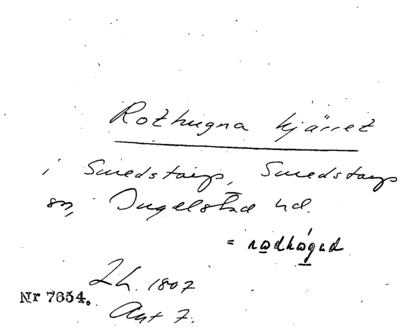 Rothugna kjärret
i Smedstorp, Smedstorps
sn, Ingelstad hd.
= rodhøged
Lh. 1807
Nr 7654.
Akt 7.